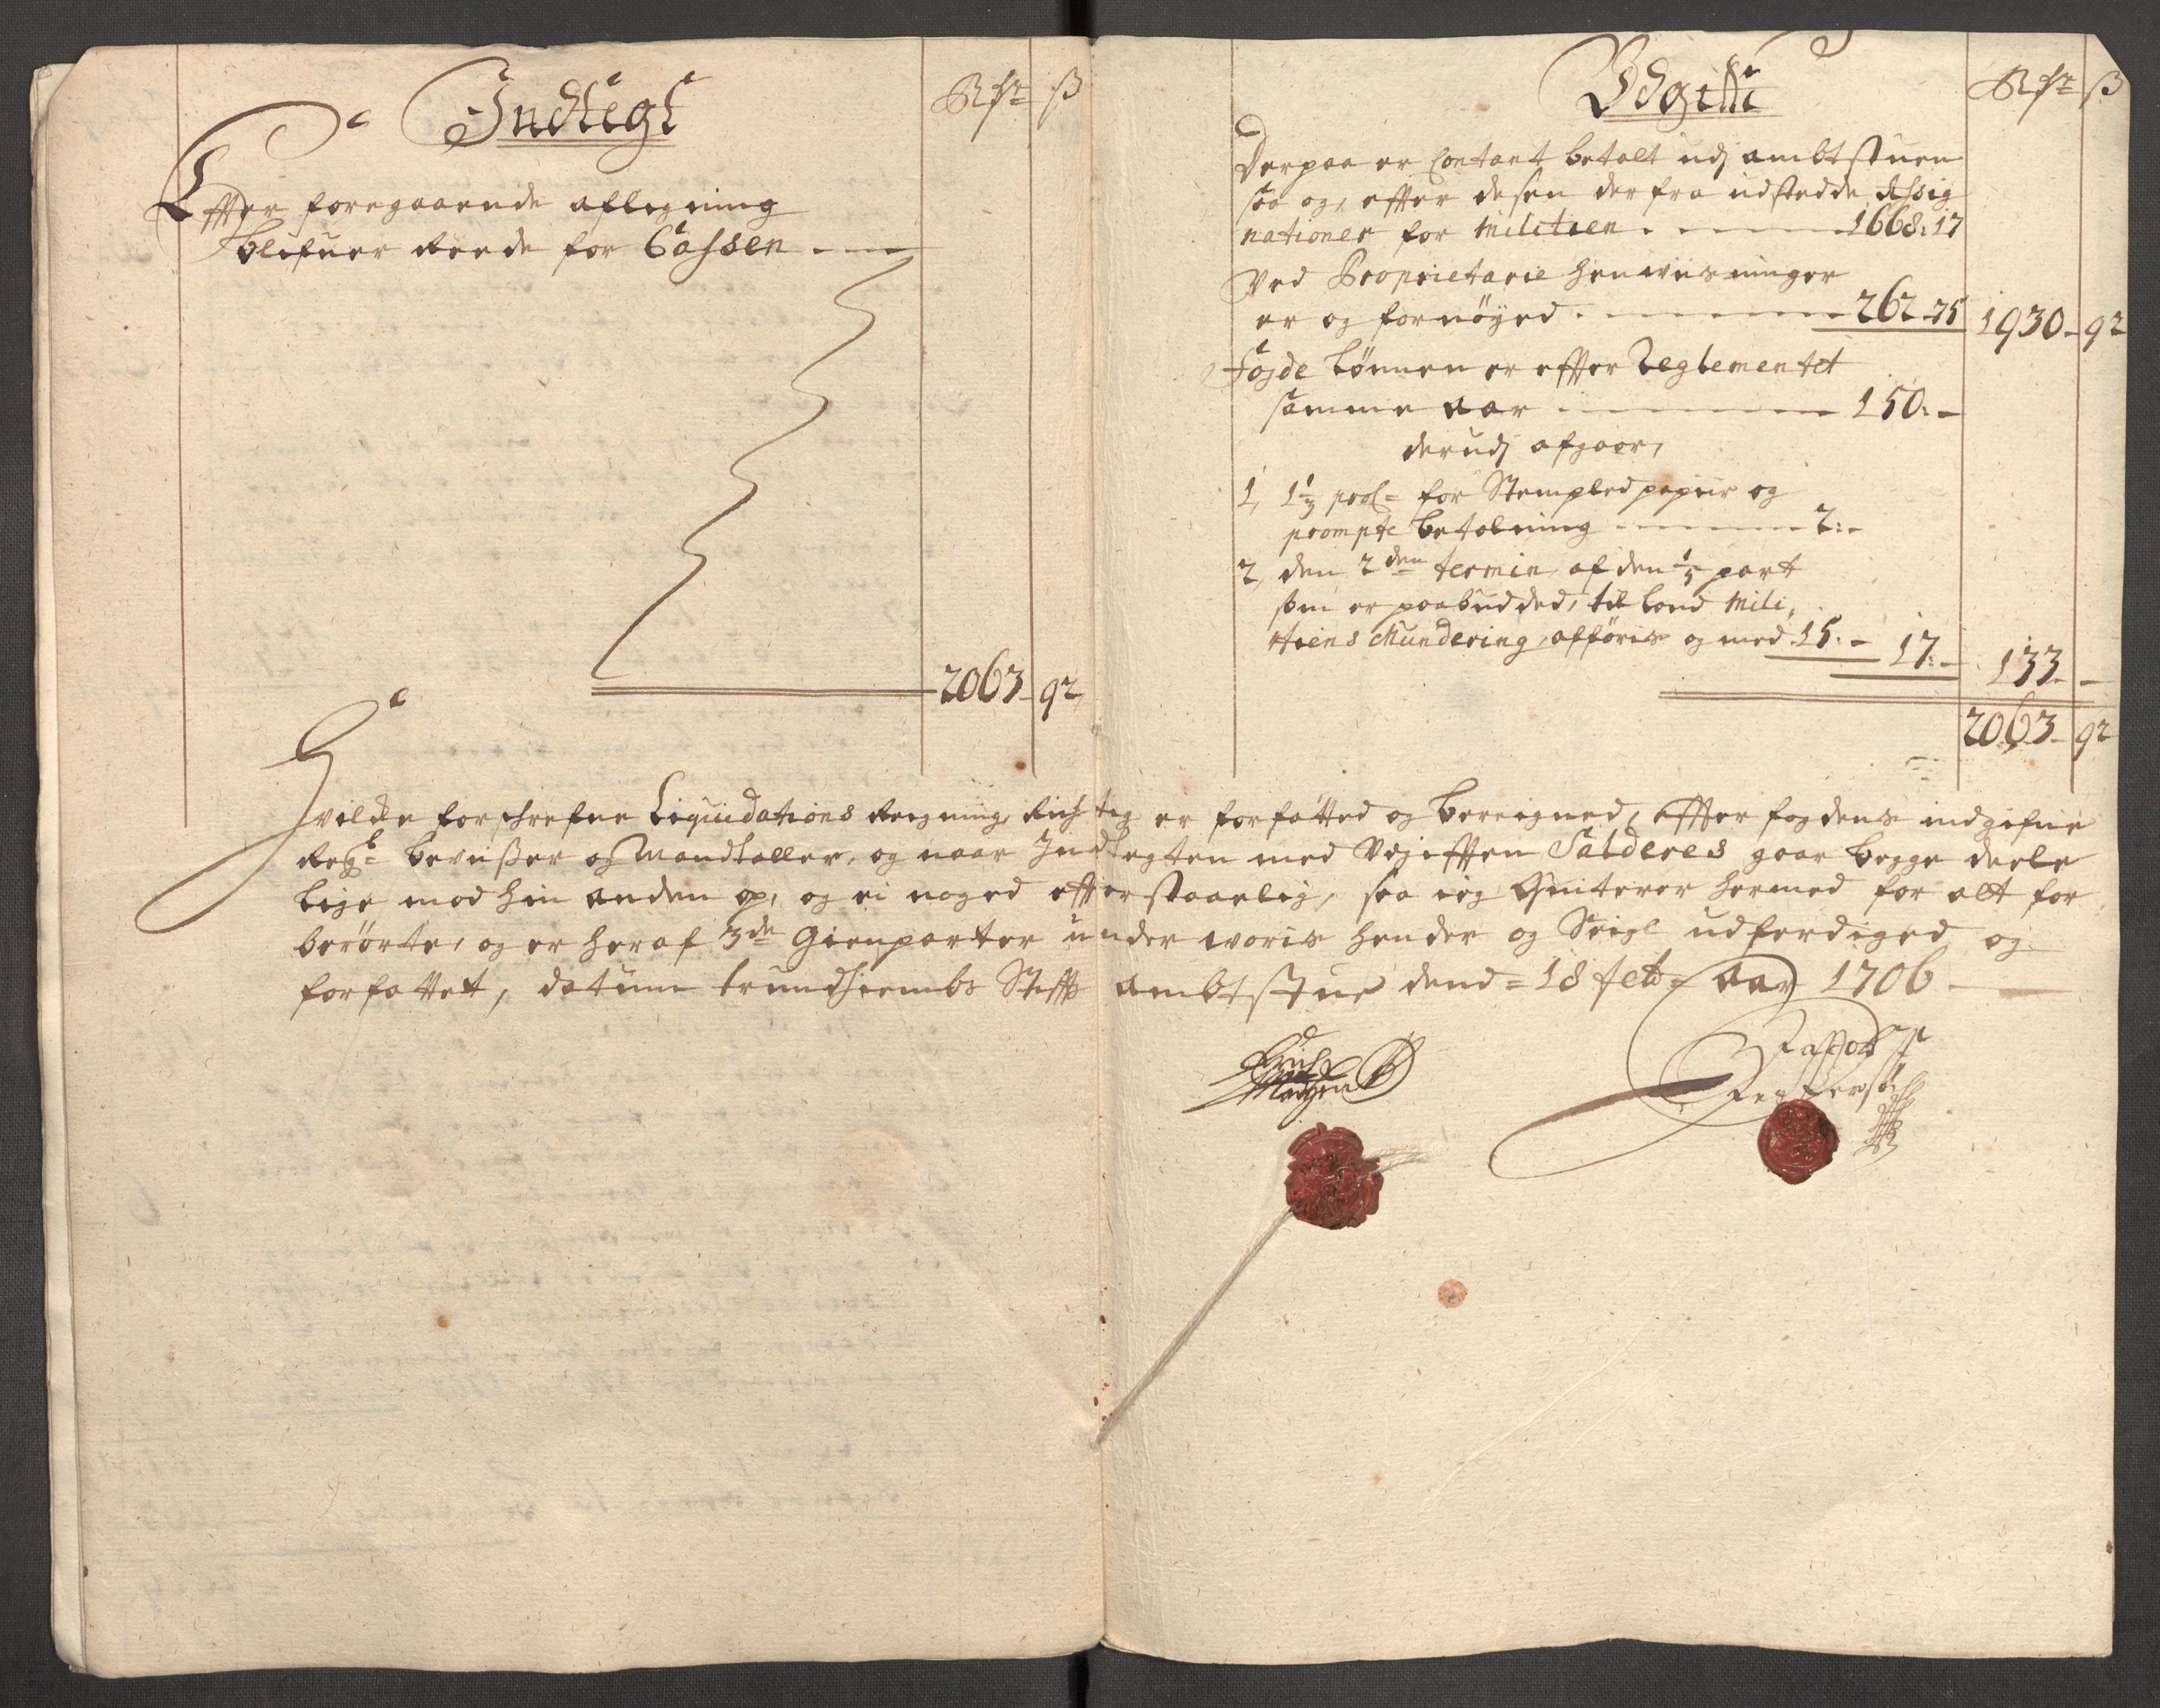 Indtegt
Rdr ß
Effter foregaaende aflegning
blifuer Reede for Cassen
2063 92
Udgifft
Rdr ß
Derpaa er Contant betalt udj ambtstuen
saa og, effter desen derfra udstedde Assig
nationer for Militien 1668: 17
Ved Proprietarie henviisninger
er og fornøyed 262 - 75 1930 - 92
Fogde Lønnen er effter Reglementet
samme aar 150: -
derudj afgaar,
1, 1 1/3 pro C= for Stempled papiir og
prompte betalning 2: -
2, den 2den termin af den 1/5 part
som er paabudded, til land Mili,
tiens Mundering, afføris og med 15: - 17: - 133 -
2063 - 92
Hvilke forschrefne Liquidations Regning, Richtig er forfatted og beregned, effter fogdens indgifne
Regs= beviißer og Mandtaller, og naar Indtegten med Udgifften Salderes gaar begge deele
lige mod hin anden op, og ei noged effterstaarlig, saa ieg Quiterer hermed for alt for
berørte, og er heraf 3de Gienparter under woris hender og Seigl udferdiged og
forfattet, datum trundhiembs Stiffts ambtstue dend = 18 feb= aar 1706